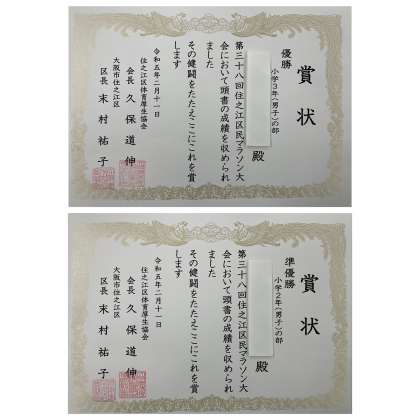 賞状
優勝
小学3年(男子)の部
殿
第三十八回住之江区民マラソン大
会において頭書の成績を収められ
ました
その健闘をたたえここにこれを賞
します
令和五年二月十一日
住之江区体育厚生協会
会長 久保道伸
大阪市住之江区
区長 末村祐子
賞状
準優勝
小学2年(男子)の部
殿
第三十八回住之江区民マラソン大
会において頭書の成績を収められ
ました
その健闘をたたえここにこれを賞
します
令和五年二月十一日
住之江区体育厚生協会
会長 久保道伸
大阪市住之江区
区長 末村祐子